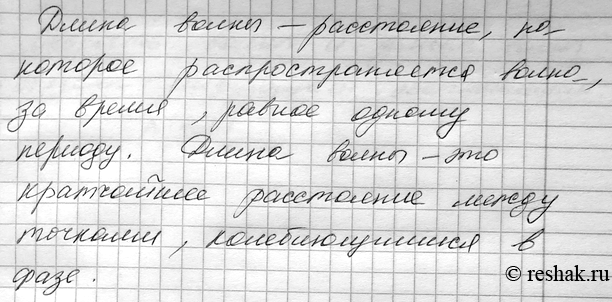 Длина волны – расстояние, на
которое распространяется волна,
за время, равное одному
периоду. Длина волны – это
кратчайшее расстояние между
точками, колеблющимися в
фазе.
© reshak.ru